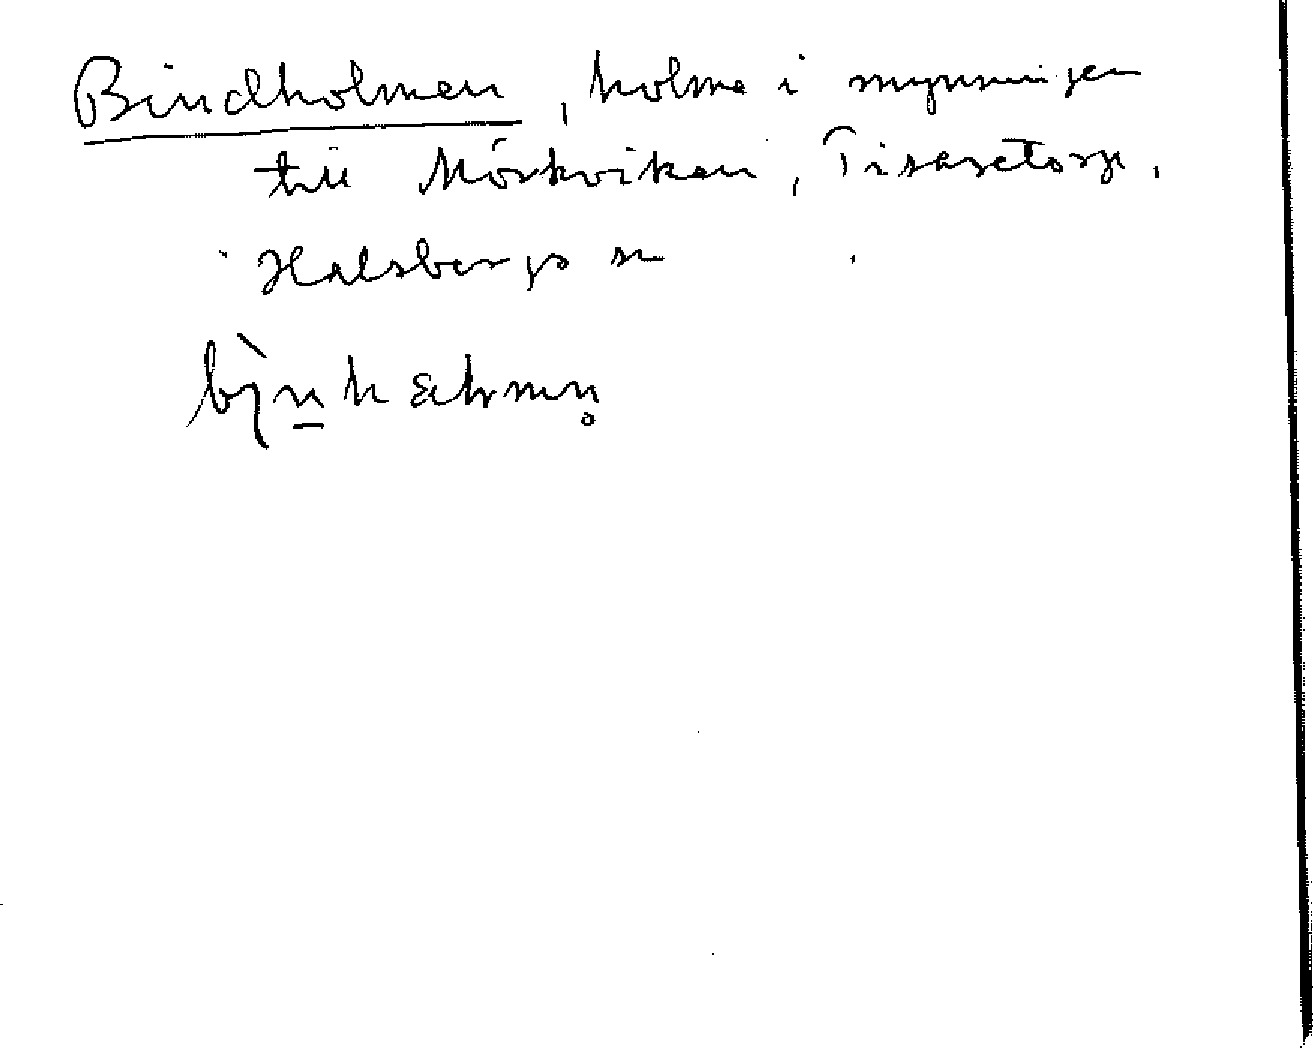 Bindholmen, holme i mynningen
till Mörkviken, Tisaretorp.
Halsbergs sn